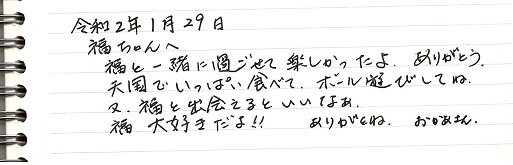 令和2年1月29日
福ちゃんへ
福と一緒に過ごせて楽しかったよ. ありがとう.
天国でいっぱい食べて. ボール遊びしてね.
又. 福と出会えるといいなぁ.
福 大好きだよ!! ありがとね. おかあさん.